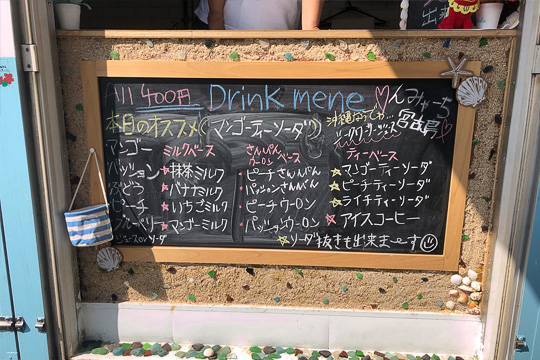 All 400円 Drink mene
んみゃーち
宮古島
本日のオススメ(マンゴーティーソーダ)
沖縄ならでわ
マンゴー
パッション
ぶどう
ピーチ
ブルーベリー
ジュース or ソーダ
ミルクベース
抹茶ミルク
バナナミルク
いちごミルク
マンゴーミルク
さんぴん
ウーロン ベース
ピーチさんぴん
パッションさんぴん
ピーチウーロン
パッションウーロン
ティーベース
マンゴーティーソーダ
ピーチティーソーダ
ライチティーソーダ
アイスコーヒー
ソーダ抜きも出来まーす